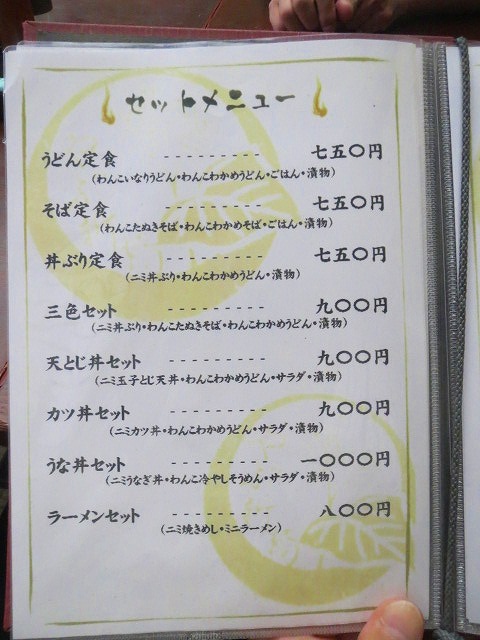 セットメニュー
うどん定食 ---------- 七五〇円
(わんこいなりうどん・わんこわかめうどん・ごはん・漬物)
そば定食 ---------- 七五〇円
(わんこたぬきそば・わんこわかめそば・ごはん・漬物)
丼ぶり定食 ---------- 七五〇円
(ニミ丼ぶり・わんこわかめうどん・漬物)
三色セット ---------- 九〇〇円
(ニミ丼ぶり・わんこたぬきそば・わんこわかめうどん・漬物)
天とじ丼セット ---------- 九〇〇円
(ニミ玉子とじ天丼・わんこわかめうどん・サラダ・漬物)
カツ丼セット ---------- 九〇〇円
(ニミカツ丼・わんこわかめうどん・サラダ・漬物)
うな丼セット ---------- 一〇〇〇円
(ニミうなぎ丼・わんこ冷やしそうめん・サラダ・漬物)
ラーメンセット ---------- 八〇〇円
(ニミ焼きめし・ミニラーメン)